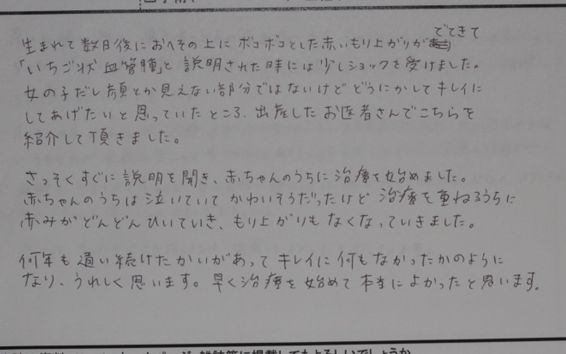 生まれて数日後におへその上にボコボコとした赤いもり上がりがでてきて
「いちご状血管腫」と説明された時には少しショックを受けました。
女の子だし顔とか見えない部分ではないけどどうにかしてキレイに
してあげたいと思っていたところ、出産したお医者さんでこちらを
紹介して頂きました。
さっそくすぐに説明を聞き、赤ちゃんのうちに治療を始めました。
赤ちゃんのうちは泣いていてかわいそうだったけど治療を重ねるうちに
赤みがどんどんひいていき、もり上がりもなくなっていきました。
何年も通い続けたかいがあってキレイに何もなかったかのように
なり、うれしく思います。早く治療を始めて本当によかったと思います。